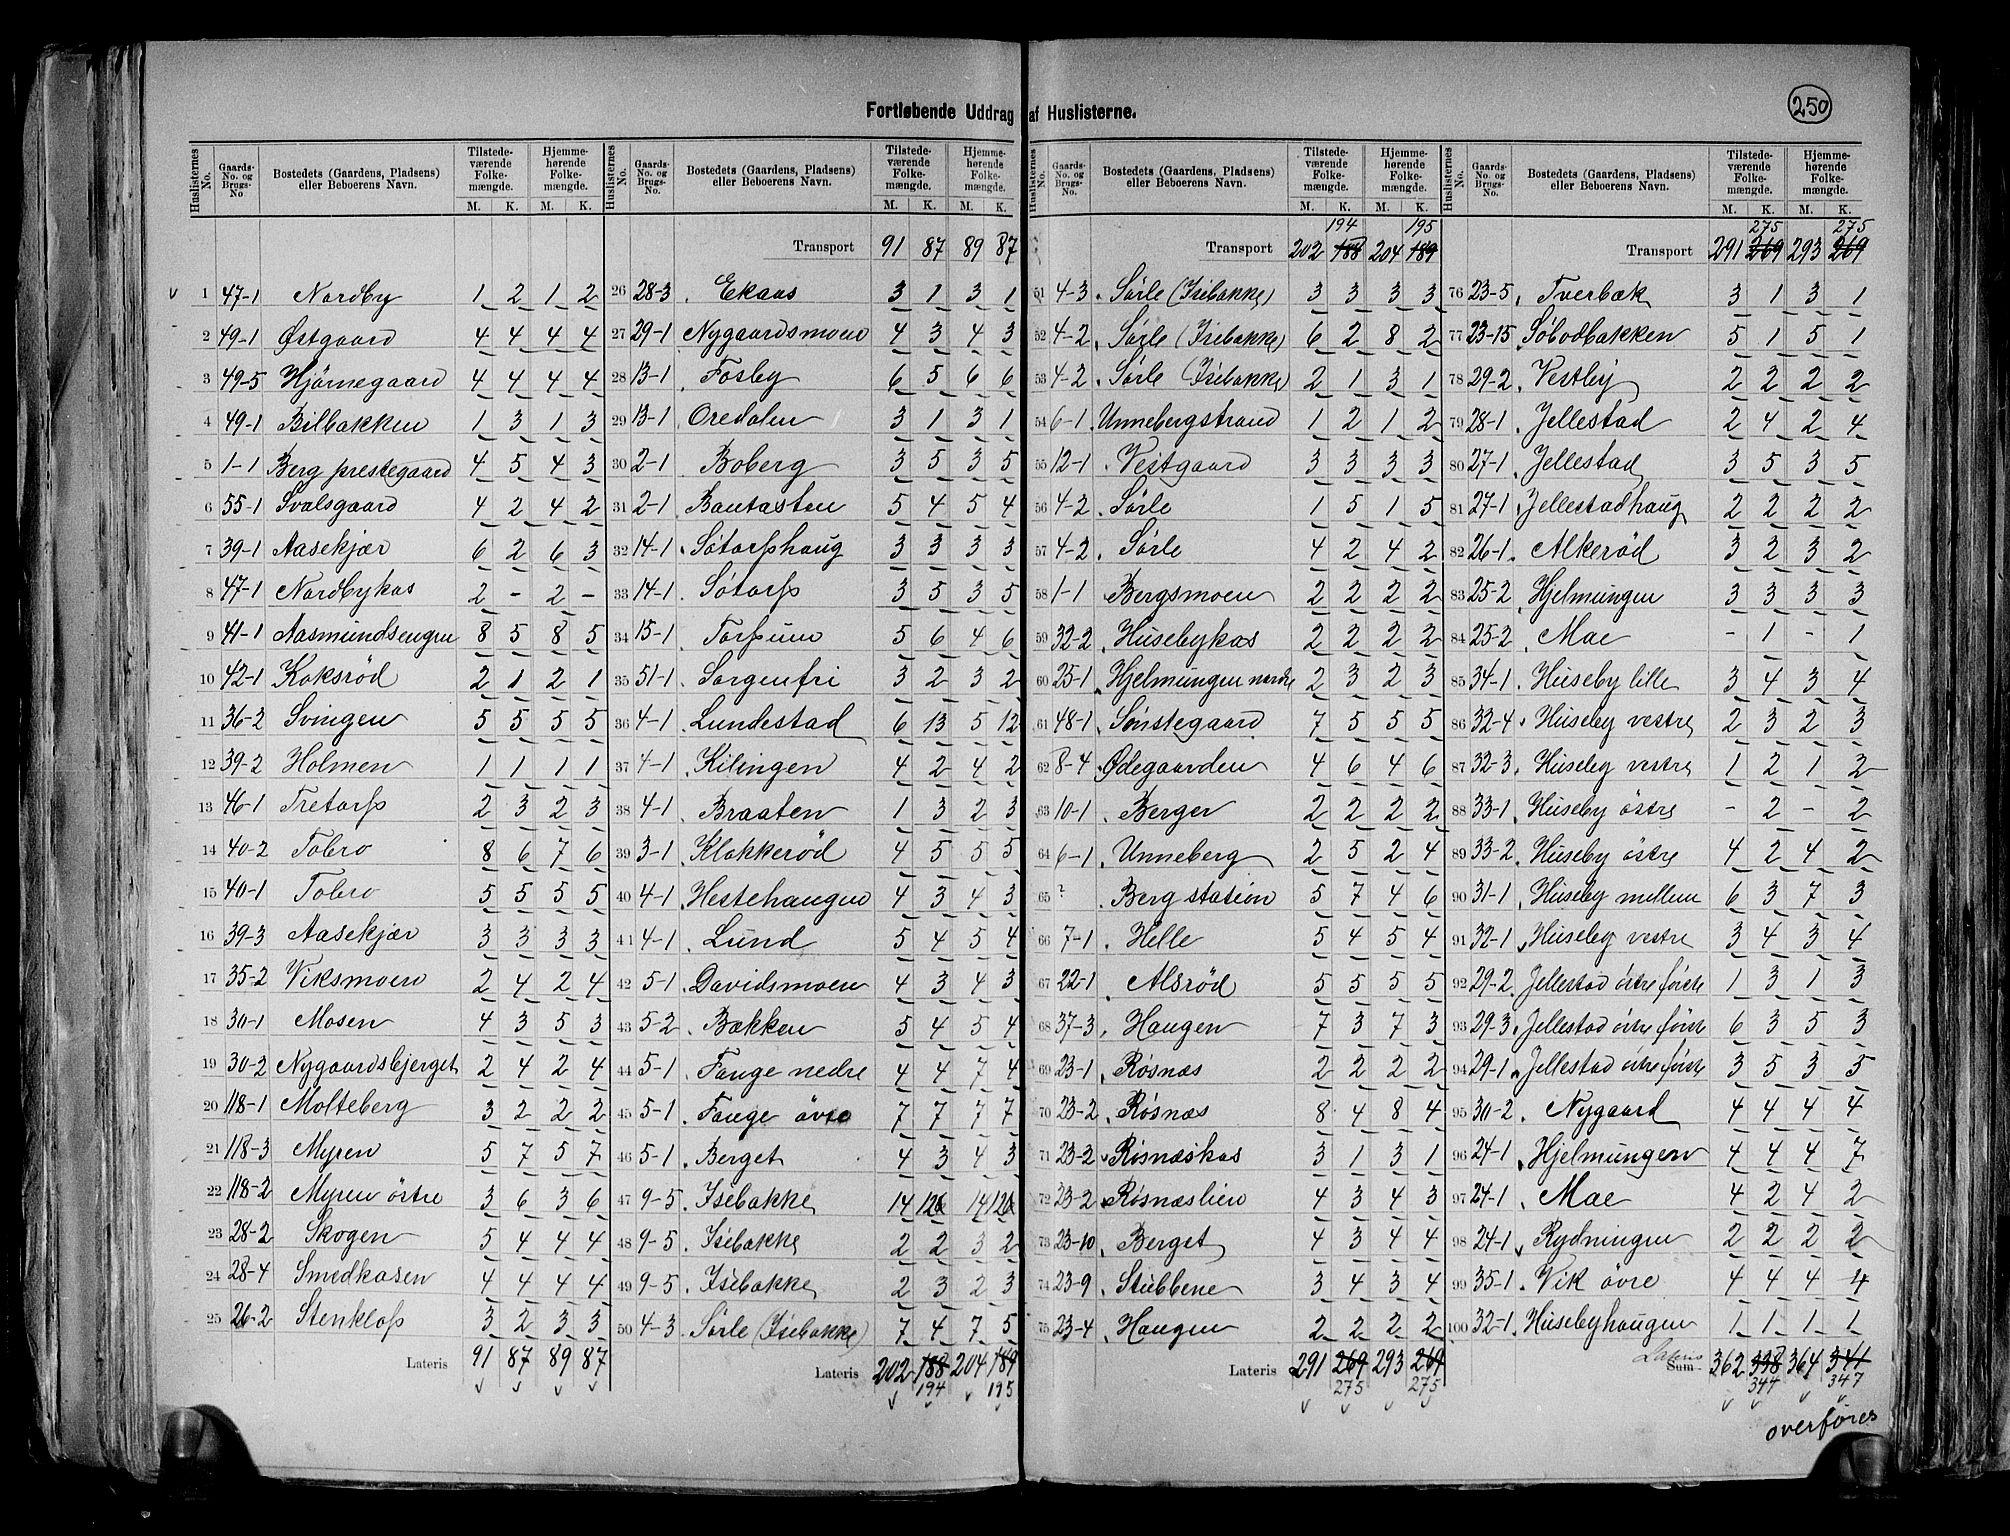 250
Fortløbende Uddrag af Huslisterne.
Huslisternes No. | Gaards-No. og Brugs-No | Bostedets (Gaardens, Pladsens) eller Beboerens Navn. | Tilstedeværende Folkemængde. M. K. | Hjemmehørende Folkemængde. M. K.
1 47-1 Nordby 1 2 1 2
2 49-1 Østgaard 4 4 4 4
3 49-5 Hjørnegaard 4 4 4 4
4 49-1 Bilbakken 1 3 1 3
5 1-1 Berg prestegaard 4 5 4 3
6 55-1 Svalsgaard 4 2 4 2
7 39-1 Aasekjær 6 2 6 3
8 47-1 Nordbykas 2 - 2 -
9 41-1 Aasmundsengen 8 5 8 5
10 42-1 Koksrød 2 1 2 1
11 36-2 Svingen 5 5 5 5
12 39-2 Holmen 1 1 1 1
13 46-1 Tretorp 2 3 2 3
14 40-2 Tobro 8 6 7 6
15 40-1 Tobro 5 5 5 5
16 39-3 Aasekjær 3 3 3 3
17 35-2 Viksmoen 2 4 2 4
18 30-1 Mosen 4 3 5 3
19 30-2 Nygaardsbjerget 2 4 2 4
20 118-1 Molteberg 3 2 2 2
21 118-3 Myren 5 7 5 7
22 118-2 Myren østre 3 6 3 6
23 28-2 Skogen 5 4 4 4
24 28-4 Smedkasen 4 4 4 4
25 26-2 Stenklop 3 2 3 3
Lateris 91 87 89 87
Huslisternes No. | Gaards-No. og Brugs-No. | Bostedets (Gaardens, Pladsens) eller Beboerens Navn. | Tilstedeværende Folkemængde. M. K. | Hjemmehørende Folkemængde. M. K.
Transport 91 87 89 87
26 28-3 Ekaas 3 1 3 1
27 29-1 Nygaardsmoen 4 3 4 3
28 13-1 Fosby 6 5 6 6
29 13-1 Oredalen 3 1 3 1
30 2-1 Boberg 3 5 3 5
31 2-1 Bautasten 5 4 5 4
32 14-1 Søtorphaug 3 3 3 3
33 14-1 Søtorp 3 5 3 5
34 15-1 Torpum 5 6 4 6
35 51-1 Sorgenfri 3 2 3 2
36 4-1 Lundestad 6 13 5 12
37 4-1 Kilingen 4 2 4 2
38 4-1 Braaten 1 3 2 3
39 3-1 Klokkerød 4 5 5 5
40 4-1 Hestehaugen 4 3 4 3
41 4-1 Lund 5 4 5 4
42 5-1 Davidsmoen 4 3 4 3
43 5-2 Bækken 5 4 5 4
44 5-1 Fange nedre 4 4 7 4
45 5-1 Fange øvre 7 7 7 7
46 5-1 Berget 4 3 4 3
47 9-5 Isebakke 14 12 14 12
48 9-5 Isebakke 2 2 3 2
49 9-5 Isebakke 2 3 2 3
50 4-3 Sørle (Isebakke) 7 4 7 5
Lateris 202 188 204 189
194 195
Huslisternes No. | Gaards-No. og Brugs-No. | Bostedets (Gaardens, Pladsens) eller Beboerens Navn. | Tilstedeværende Folkemængde. M. K. | Hjemmehørende Folkemængde. M. K.
194 195
Transport 202 188 204 189
51 4-3 Sørle (Isebakke) 3 3 3 3
52 4-2 Sørle (Isebakke) 6 2 8 2
53 4-2 Sørle (Isebakke) 2 1 3 1
54 6-1 Unnebergstrand 1 2 1 2
55 12-1 Vestgaard 3 3 3 3
56 4-2 Sørle 1 5 1 5
57 4-2 Sørle 4 2 4 2
58 1-1 Bergsmoen 2 2 2 2
59 32-2 Husebykas 2 2 2 2
60 25-1 Hjelmungen nordre 2 3 2 3
61 48-1 Sønstegaard 7 5 5 5
62 8-4 Ødegaarden 4 6 4 6
63 10-1 Berger 2 2 2 2
64 6-1 Unneberg 2 5 2 4
65 ? Berg station 5 7 4 6
66 7-1 Helle 5 4 5 4
67 22-1 Alsrød 5 5 5 5
68 37-3 Haugen 7 3 7 3
69 23-1 Røsnæs 2 2 2 2
70 23-2 Røsnæs 8 4 8 4
71 23-2 Røsnæskas 3 1 3 1
72 23-2 Røsnæslien 4 3 4 3
73 23-10 Berget 4 3 4 4
74 23-9 Stubbene 3 4 3 4
75 23-4 Haugen 2 2 2 2
Lateris 291 269 293 269
275 275
Huslisternes No. | Gaards-No. og Brugs-No. | Bostedets (Gaardens, Pladsens) eller Beboerens Navn. | Tilstedeværende Folkemængde. M. K. | Hjemmehørende Folkemængde. M. K.
275 275
Transport 291 269 293 269
76 23-5 Tverbæk 3 1 3 1
77 23-15 Søbodbakken 5 1 5 1
78 29-2 Vestby 2 2 2 2
79 28-1 Jellestad 2 4 2 4
80 27-1 Jellestad 3 5 3 5
81 27-1 Jellestadhaug 2 2 2 2
82 26-1 Alkerød 3 2 3 2
83 25-2 Hjelmungen 3 3 3 3
84 25-2 Mae - 1 - 1
85 34-1 Huseby lille 3 4 3 4
86 32-4 Huseby vestre 2 3 2 3
87 32-3 Huseby vestre 1 2 1 2
88 33-1 Huseby østre - 2 - 2
89 33-2 Huseby østre 4 2 4 2
90 31-1 Huseby mellem 6 3 7 3
91 32-1 Huseby vestre 3 4 3 4
92 29-2 Jellestad østre første 1 3 1 3
93 29-3 Jellestad østre første 6 3 5 3
94 29-1 Jellestad østre første 3 5 3 5
95 30-2 Nygaard 4 4 4 4
96 24-1 Hjelmungen 4 4 4 7
97 24-1 Mae 4 2 4 2
98 24-1 Rydningen 2 2 2 2
99 35-1 Vik øvre 4 4 4 4
100 32-1 Husebyhaugen 1 1 1 1
Lateris
Sum 362 338 364 341
344 347
overføres